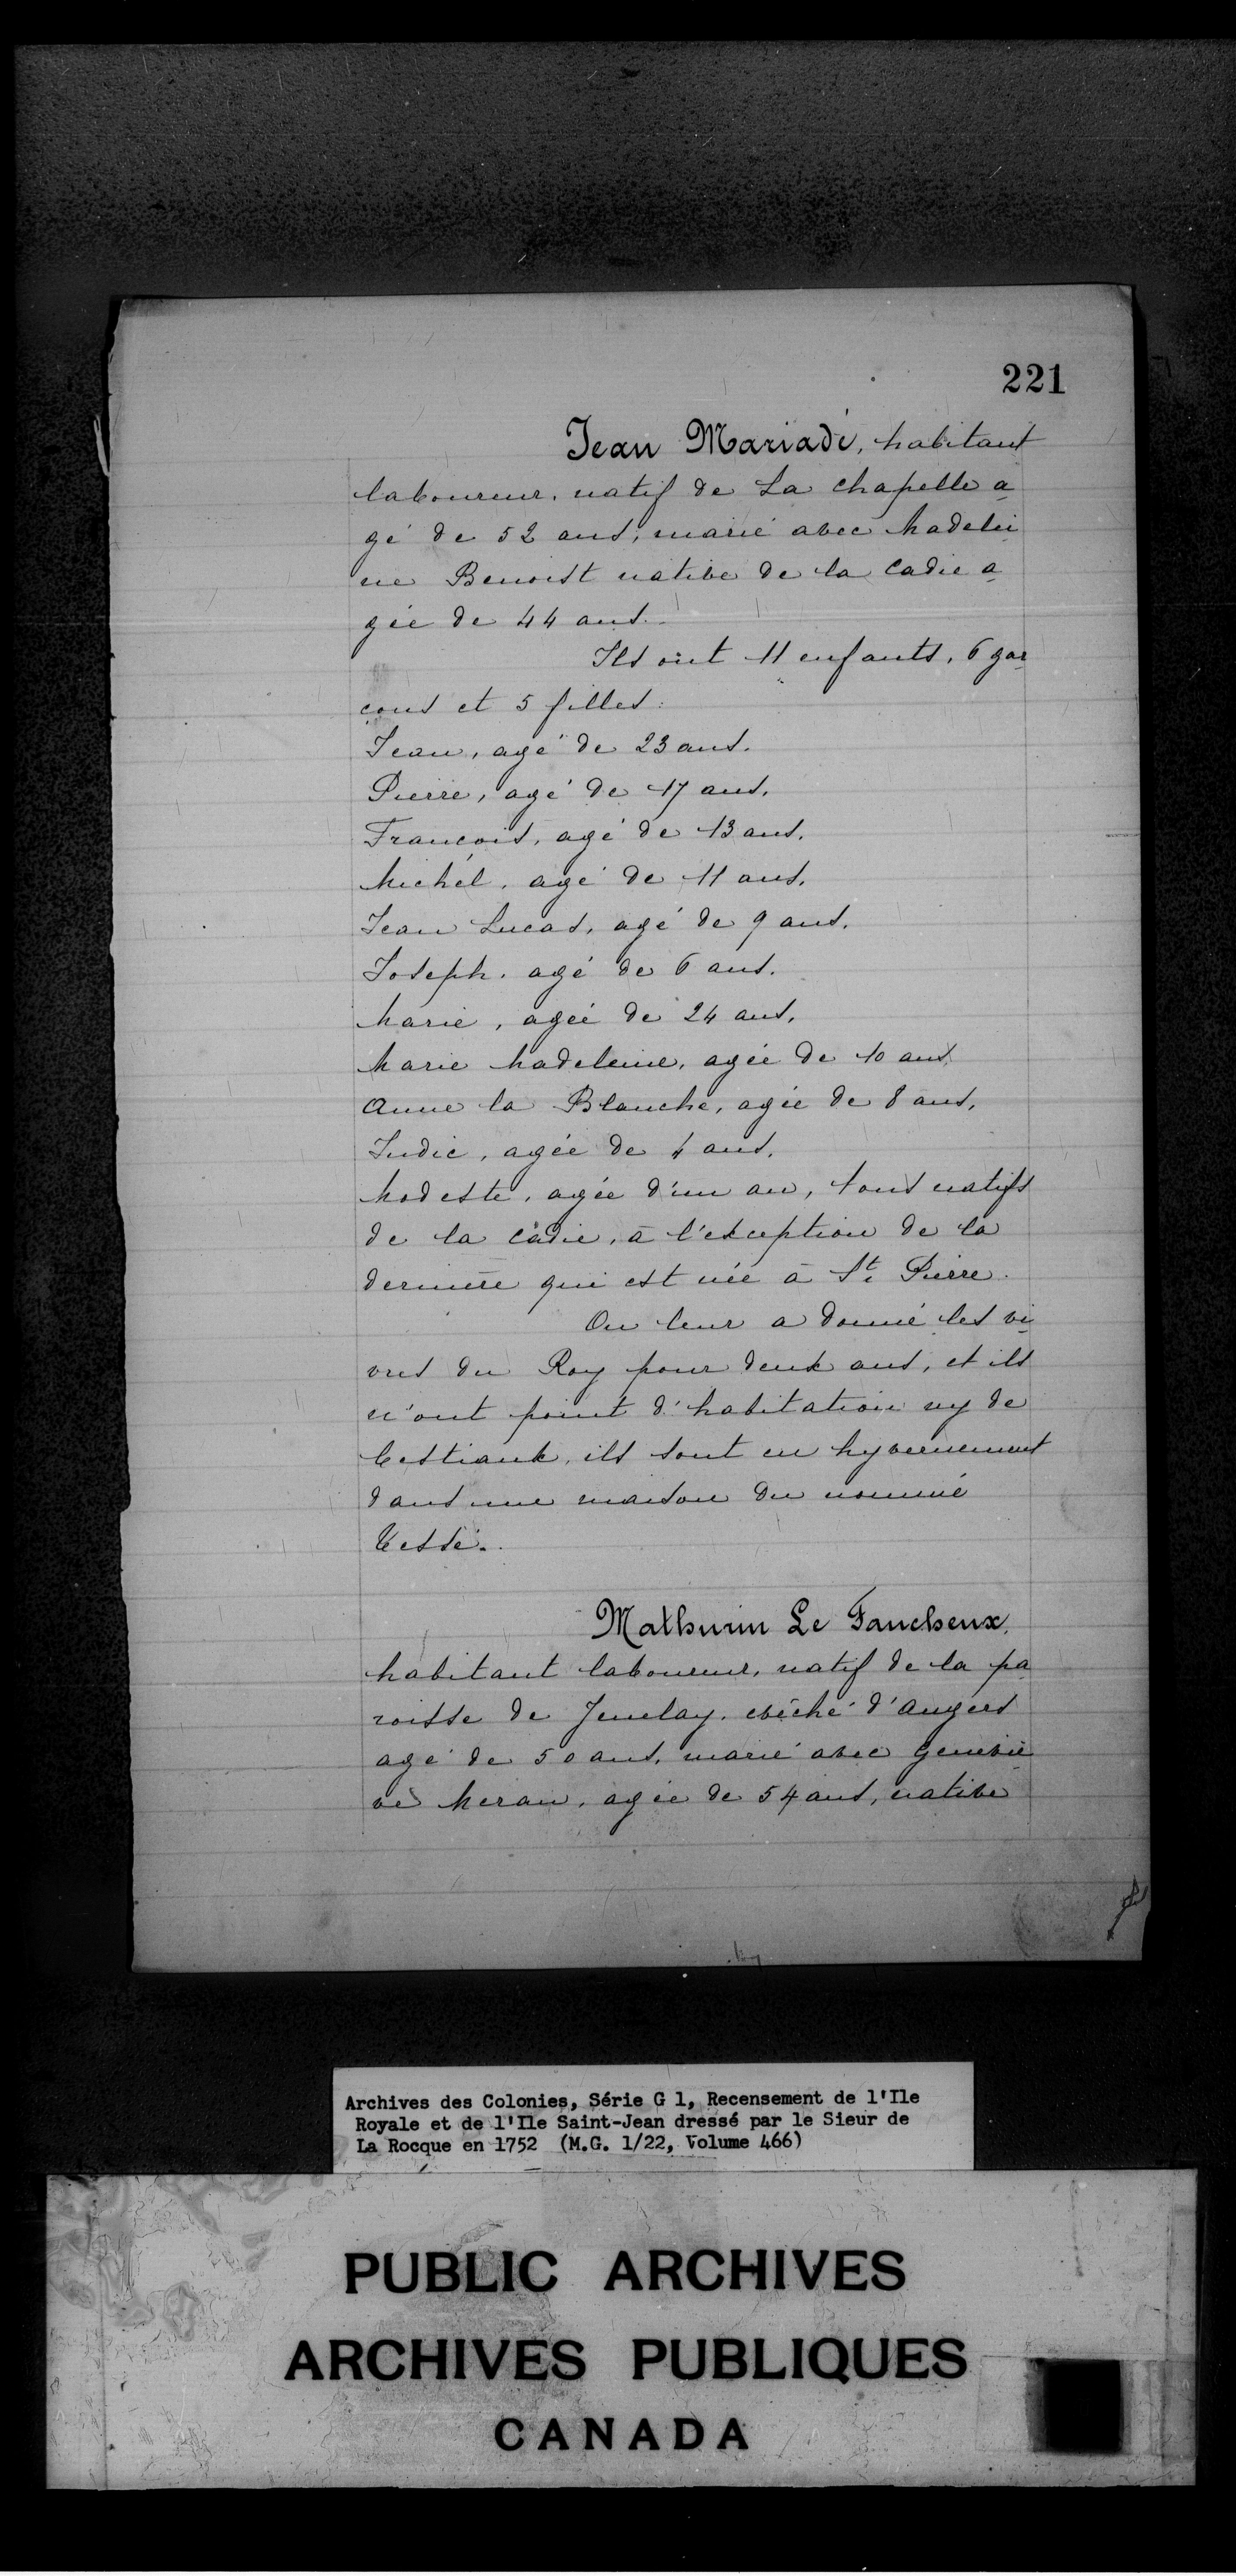 221
Jean Mariadé, habitant
laboureur, natif de La chapelle a
gé de 52 ans, marié avec Madelei
ne Benoist native de la Cadie a
gée de 44 ans.
Ils ont 11 enfants, 6 gar
çons et 5 filles:
Jean, agé de 23 ans.
Pierre, agé de 17 ans.
François, agé de 13 ans.
Michél, agé de 11 ans.
Jean Lucas, agé de 9 ans.
Joseph, agé de 6 ans.
Marie, agée de 24 ans.
Marie Madeleine, agée de 10 ans.
Anne la Blanche, agée de 8 ans.
Judic, agée de 4 ans.
Modeste, agée d'un an, tous natifs
de la Cadie, à l'exception de la
dernière qui est née à St. Pierre.
On leur a donné les vi
vres du Roy pour deux ans, et ils
n'ont point d'habitation ny de
bestiaux, ils sont en hyvernement
dans une maison du nommé
Tessé.
Mathurin Le Faucheux,
habitant laboureur, natif de la pa
roisse de Jenelay, evêché d'Angers
agé de 50 ans, marié avec Geneviè
ve Meran, agée de 54 ans, native
Archives des Colonies, Série G 1, Recensement de l'Ile
Royale et de l'Ile Saint-Jean dressé par le Sieur de
La Rocque en 1752 (M.G. 1/22, Volume 466)
PUBLIC ARCHIVES
ARCHIVES PUBLIQUES
CANADA